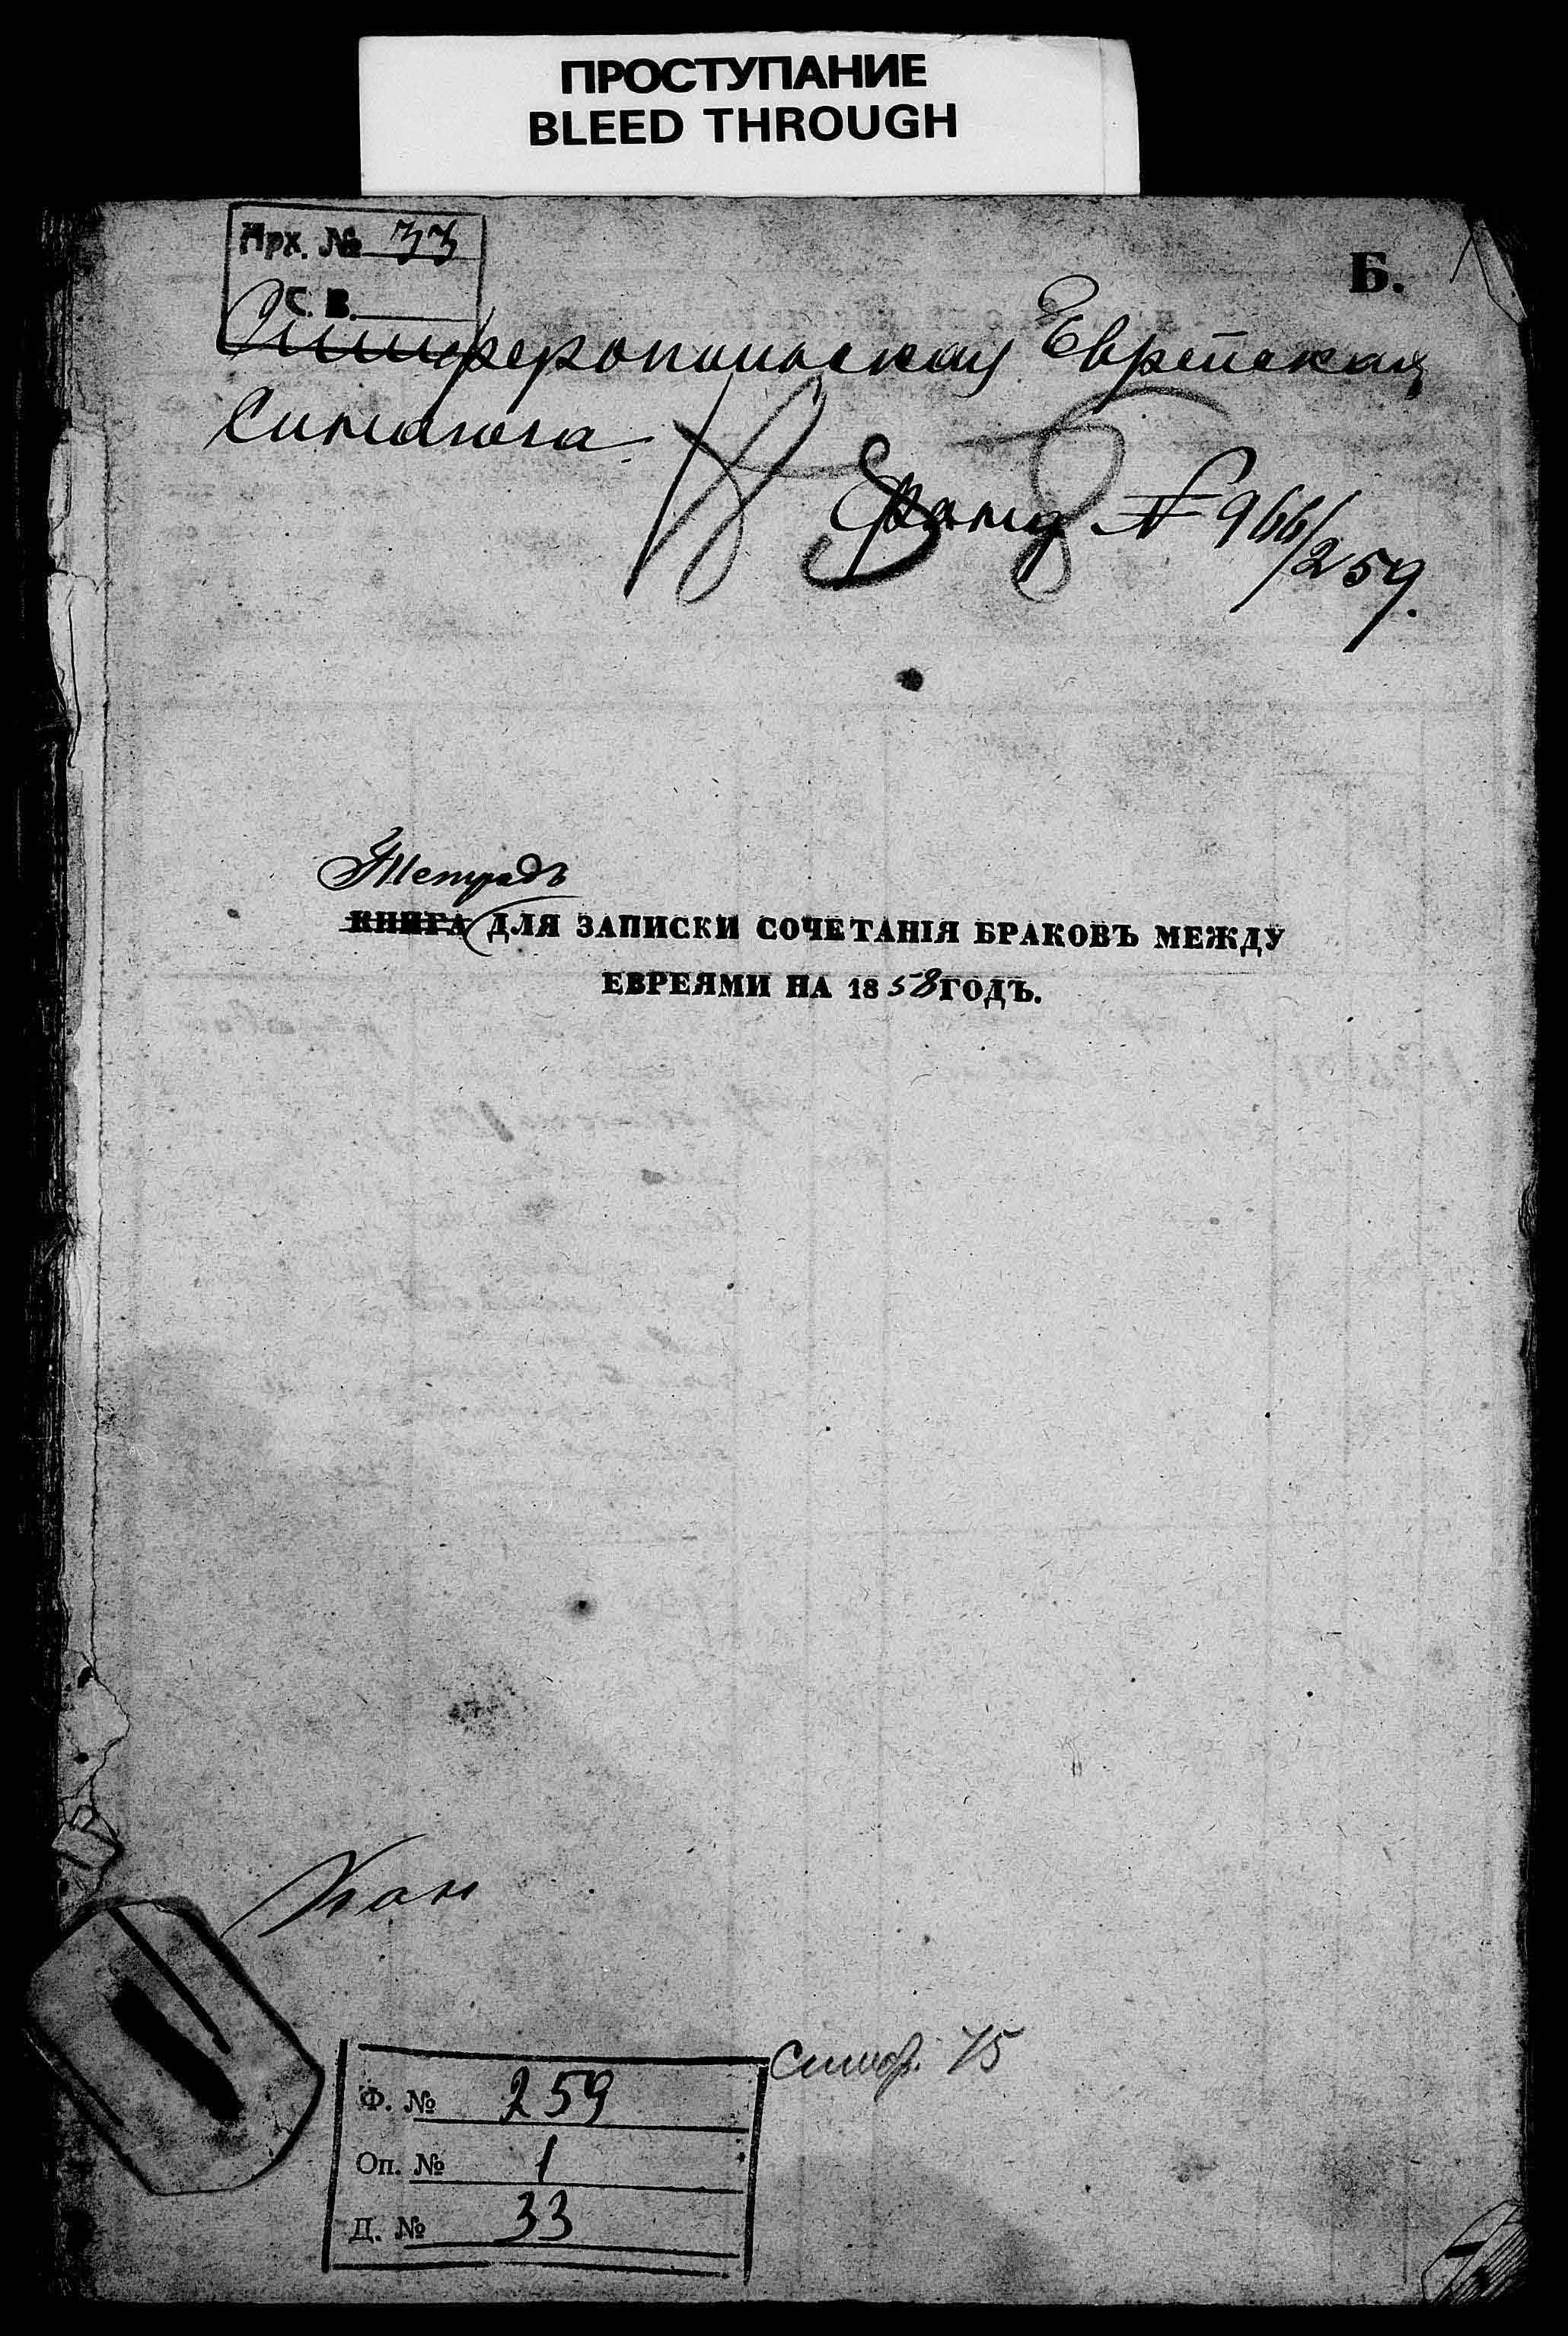 ПРОСТУПАНИЕ
BLEED THROUGH
Арх. № 33
С. В.
Б.
Симферопольская Еврейская
Синагога
Фонд № 966/259.
Тетрадь
КНИГА ДЛЯ ЗАПИСКИ СОЧЕТАНІЯ БРАКОВЪ МЕЖДУ
ЕВРЕЯМИ НА 1858 ГОДЪ.
Симф. 15
Ф. № 259
Оп. № 1
Д. № 33